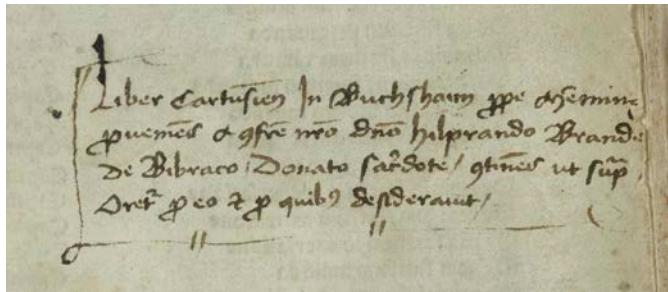 Liber Cartusien̄ In Buchshaim ꝓpe Memin̄
ꝓueniēs a ꝯfrē nr̄o dn̄o hilprando Brande
de Bibraco, Donato sac̄dote, ꝯtinēs ut sup̄,
Oret̄ ꝓ eo et ꝓ quibꝫ desiderauit,